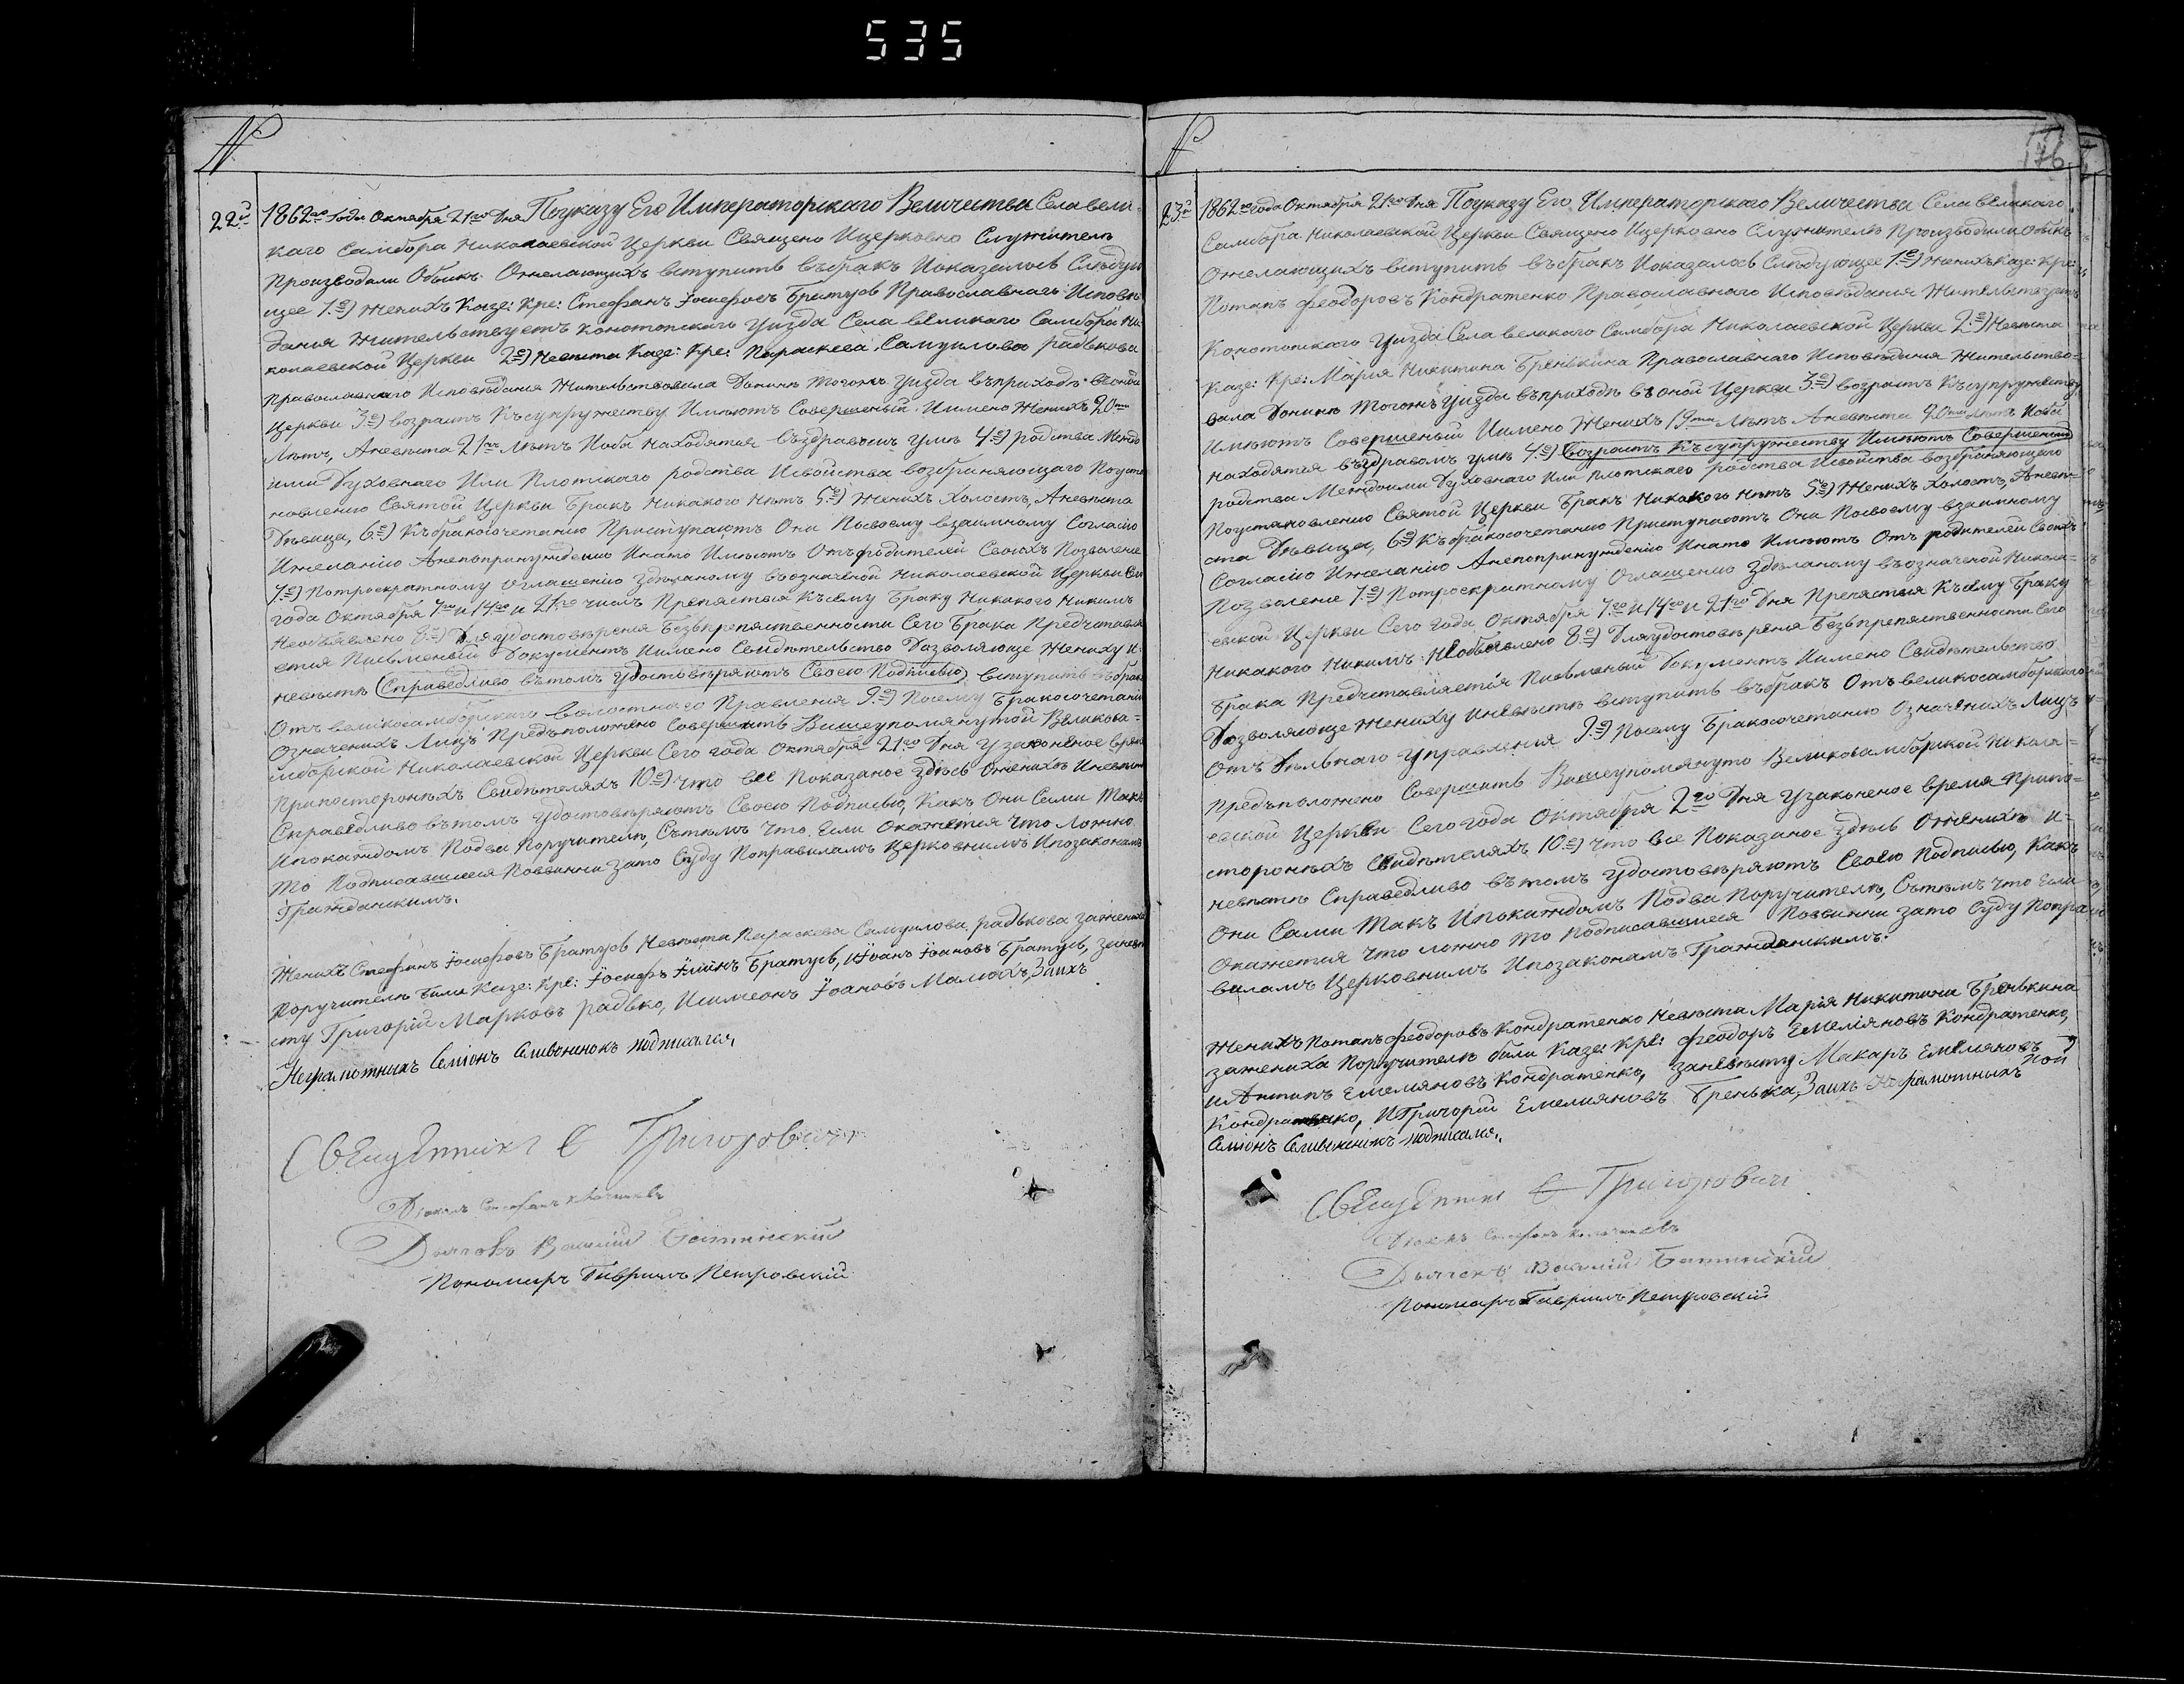 535
№
22й
1862го года Октября 21го Дня Поуказу Его Императорскаго Величества Села вели-
каго Самбора Николаевской Церкви Священо Ицерковно Служители
Производили Обыкъ. Ожелающихъ вступить въбракъ Ноказалось Слъдую
щее 1.е) Женихъ Казе: Кре: Стефанъ Іосифовъ Братусь Православнаго Исповъ
данія Жительствуетъ Конотопскаго Уизда Села великаго Самбора Ни-
колаевской Церкви 2е) Невъста Казе: Кре: Параскева Самуилова радькова
Православнаго Исповъданія Жительствовала Доныни Тогожъ Уизда въприходъ въоной
Церкви 3е) возрастъ Къ супружеству Имъютъ Совершеный Иимено Женихъ 20
Лътъ, Аневъста 21 Лътъ Иоба Находятся въздравомъ умъ 4е) родства Межд
ими Духовнаго Или Плотскаго родства Исвойства возбраняющаго Поуста
новлению Святой Церкви Бракъ Никакого Нътъ 5е) Женихъ Холостъ, Аневъста
Дъвица, 6е) Къбракосочетанию Приступаютъ Они Посвоему взаимному Согласию
Ижеланію Анепопринуждению Инато Имъютъ Отъродителей Своихъ Позволение
7е) Потроекратному оглашению Здъланому въозначеной Николаевской Церкви Се
года Октября 7го и 14го и 21го числъ Препяствия Къ сему Браку Никакого Никимъ
Необъявлено 8е) Для удостовърения Безъпрепяственности Сего Брака Предъставля
ется Письменый Документъ Иимено Свидътельство Дозволяюще Жениху и-
невъстъ (Справедливо вътомъ Удостовъряютъ Своею Подписью) вступить въбракъ
Отъ великосамборскаго волостнаго Правления 9е) Посему Бракосочетанию
Означеныхъ Лицъ Предъположено Совершить Вышеупомянутой Великоса-
мборской Николаевской Церкви Сего года Октября 21го Дня Узаконеное время
Припостороныхъ Свидътеляхъ 10е) что все Показаное Здъсь Оженихъ Иневъст
Справедливо вътомъ Удостовъряютъ Своею Подписью, Какъ Они Сами Такъ
Ипокаждомъ Подва Поручителъ, Сътъмъ что Если Окажется что Ложно
То Подписавшиеся Повинни Зато Суду Поправиламъ Церковнымъ Ипозаконамъ
Гражданскимъ.
Женихъ Стефанъ Іосифовъ Братусь Невъста Параскева Самуилова радькова зажениха
Поручителъ были Казе: Кре: Іосифъ Братусь, иІоанъ Іоановъ Братусь, заневъ
сту Григорій Марковъ радько, Исимеонъ Іоановъ Малюкъ, Заихъ
Неграмотныхъ Семіонъ Сливонокъ подписался.
Священникъ С Григоровичъ
Діаконъ Стефанъ
Дьячокъ Василій
Пономаръ Гавріилъ Петровскій
№
176
23й
1862го года Октября 21го Дня Поуказу Его Императорскаго Величества Села великаго
Самбора Николаевской Церкви Священо Ицерковно Служителъ Производили Обыкъ
Ожелающихъ вступить въбракъ Ноказалось Слъдующее 1е) Женихъ Казе: Кре:
Потапъ Феодоровъ Кондратенко Православнаго Исповъдания Жительствуетъ
Конотопскаго Уизда Села великаго Самбора Николаевской Церкви 2е) Невъста
Казе: Кре: Марія Никитина Бренькина Православнаго Исповъдания Жительство-
вала Доныни Тогожъ Уизда въприходъ въ оной Церкви 3е) возрастъ Къ супружеству
Имъютъ Совершеный Иимено Женихъ 19 Лътъ Аневъста 20 лътъ Иоба
Находятся въздравомъ умъ 4е) (возрастъ Къ супружеству Имъютъ Совершеный)
родства Междоими Духовнаго Или Плотскаго родства Исвойства возбраняющего
Поустановлению Святой Церкви Бракъ Никакого Нътъ 5е) Женихъ Холостъ, Аневъ-
ста Дъвица, 6е) Къбракосочетанию Приступаютъ Они Посвоему взаимному
Согласию Ижеланию Анепопринуждению Инато Имъютъ Отъ родителей Своихъ
Позволение 7е) Потроекратному Оглашению Здъланому въозначеной Никола-
евской Церкви Сего года Октября 7го и 14го и 21го Дня Препяствия Къ сему Браку
Никакого Никимъ Необъявлено 8е) Для удостовърения Безъпрепяственности Сего
Брака Предъставляется Письменый Документъ Иимено Свидътельство
Дозволяюще Жениху Иневъстъ вступить въбракъ Отъ великосамборскаго
Отъ Дъльнаго Управления 9е) Посему Бракосочетанию Означеныхъ Лицъ
Предъположено Совершить Вышеупомянуто Великосамборской Никола-
евской Церкви Сего года Октября 2го Дня Узаконеное время Припо-
стороныхъ Свидътеляхъ 10е) что все Показаное Здъсь Оженихъ и-
невъстъ Справедливо вътомъ Удостовъряютъ Своею Подписью, Какъ
Они Сами Такъ Ипокаждомъ Подва Поручителъ, Сътъмъ что Если
Окажется что ложно то Подписавшиеся Повинни зато Суду Попра
виламъ Церковнымъ Ипозаконамъ Гражданскимъ.
Женихъ Потапъ Феодоровъ Кондратенко Невъста Марія Никитина Бренькина
зажениха Поручителъ были Казе: Кре: Феодоръ Емеліяновъ Кондратенко,
иАнтипъ Емеляновъ Кондратенко, заневъсту Макаръ Емеляновъ
Кондратенко, ИГригорій Емелияновъ Бренька, Заихъ Неграмотныхъ
Семіонъ Сливонокъ подписался.
Священникъ С Григоровичъ
Діаконъ Стефанъ
Дьячекъ Василій
Пономаръ Гавріилъ Петровскій